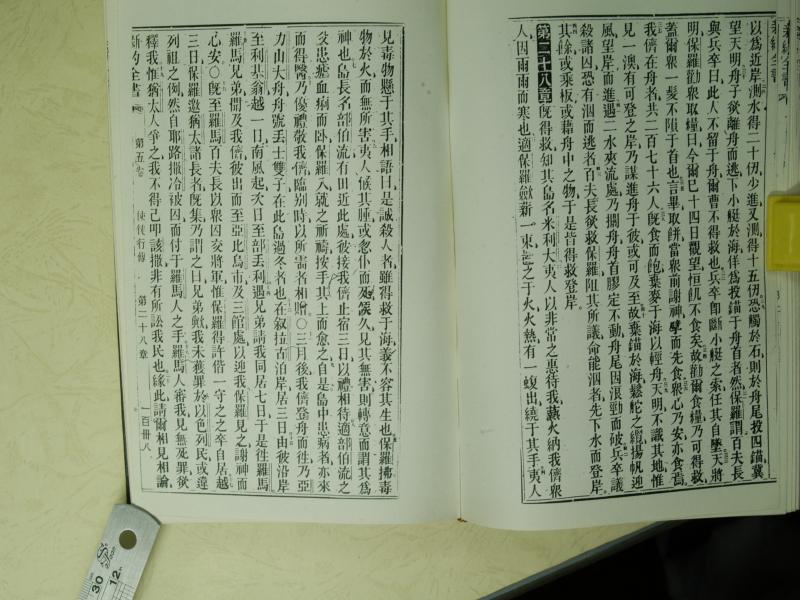 以爲近岸測水得二十仞少進又測得十五仞恐觸於石則於舟尾投四錨冀
望天明舟子欲離舟而逃下小艇於海佯爲投錨于舟首者然保羅謂百夫長
與兵卒曰此人不留于舟爾曹不得救也兵卒卽斷小艇之索任其自墜天將
明保羅勸衆取糧曰今爾巳十四日觀望恒飢不食矣故勸爾食糧乃可得救
蓋爾衆一髮不隕于首也言畢取餅當衆前謝神擘而先食衆心乃安亦食焉
我儕在舟名共二百七十六人旣食而飽棄麥于海以輕舟天明不識其地惟
見一澳有可登之岸乃謀進舟于彼或可及至故棄錨於海鬆舵之纜揚帆迎
風望岸而進遇二水夾流處乃擱舟舟首膠定不動舟尾因浪勁而破兵卒議
殺諸囚恐有泅而逃者百夫長欲救保羅阻其所議命能泅者先下水而登岸
其餘或乘板或藉舟中之物于是皆得救登岸
第二十八章旣得救知其島名米利大夷人以非常之惠待我爇火納我儕衆
人因雨雨而寒也適保羅歛薪一束之于火火熱有一蝮出繞于其手夷人
見毒物懸于其手相語曰是誠殺人者雖得救于海義不容其生也保羅拂毒
物於火而無所害夷人候其腫或忽仆而死俟久見其無害則轉意而謂其爲
神也島長名部伯流有田近此處彼接我儕止宿三日以禮相待適部伯流之
父患瘧血痢而卧保羅入就之祈禱按手其上而愈之自是島中患病者亦來
而得醫乃優禮敬我儕臨別時以所需者相贈○三月後我儕登舟而往乃亞
力山大舟舟號丟士雙子在此島過冬者也在叙拉古泊岸居三日由彼沿岸
至利基翁越一日南風起次日至部丟利遇兄弟請我同居七日于是往羅馬
羅馬兄弟聞及我儕彼出而至亞比烏市及三館處以迎我保羅見之謝神而
心安○旣至羅馬百夫長以衆囚交將軍惟保羅得許偕一守之之卒自居越
三日保羅邀猶太諸長者旣集乃謂之曰兄弟歟我未獲罪於以色列民或違
列祖之例然自耶路撒冷被囚而付于羅馬人之手羅馬人審我見無死罪欲
釋我惟猶太人爭之我不得已叩該撒非有所訟我民也緣此請爾相見相論
新約全書 第五卷 使徒行傳 第二十八章 一百卅八
30
12